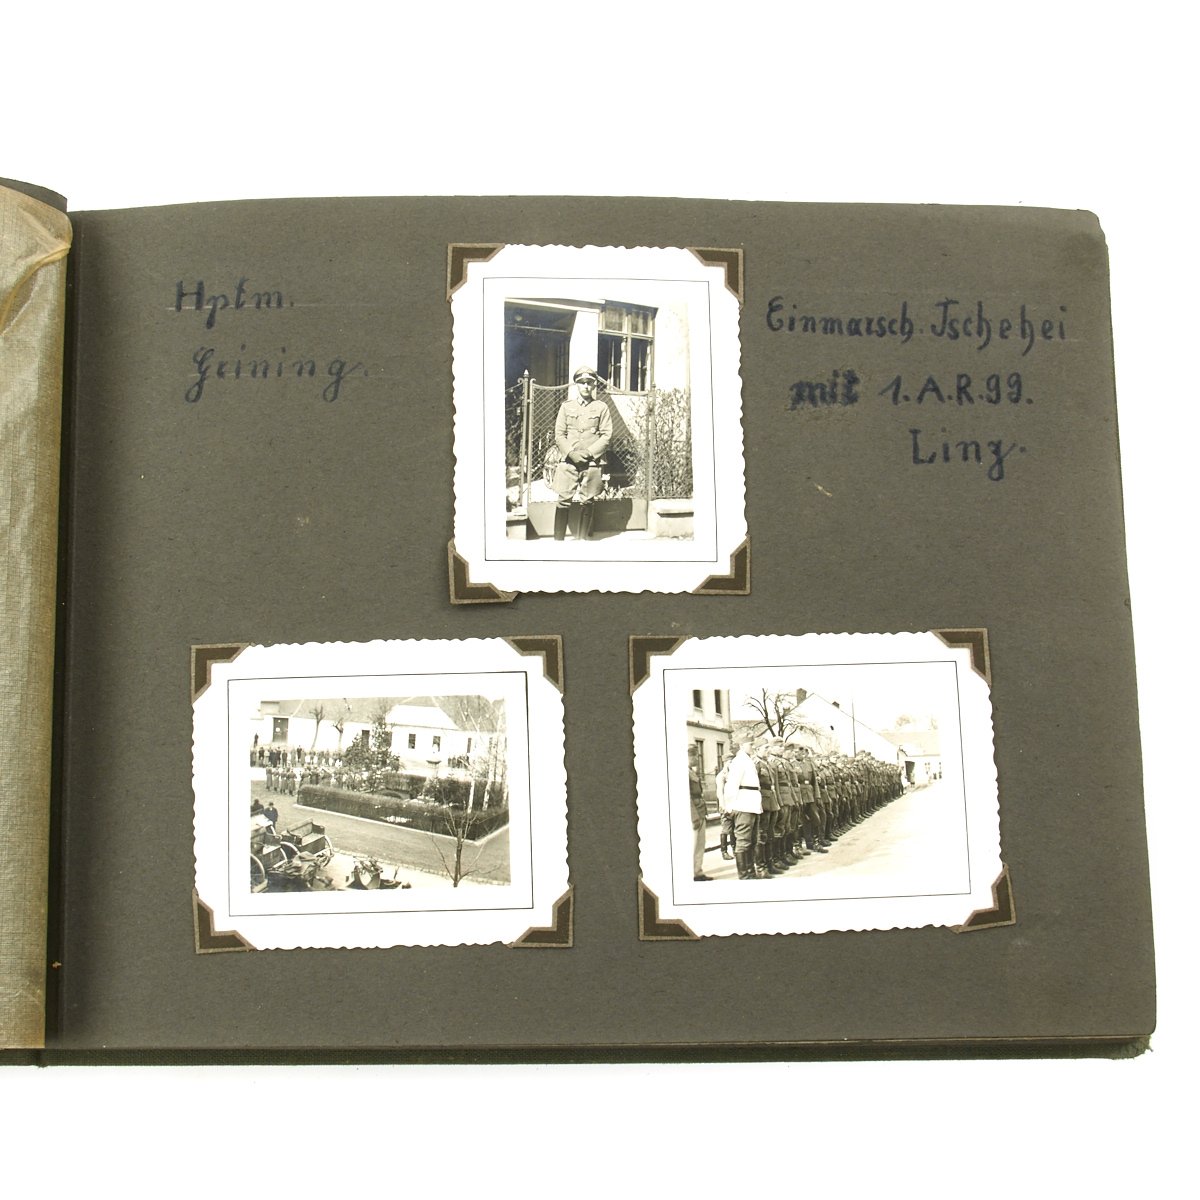 Hptm.
Geining.
Einmarsch. Tschehei
mit 1.A.R.99.
Linz.